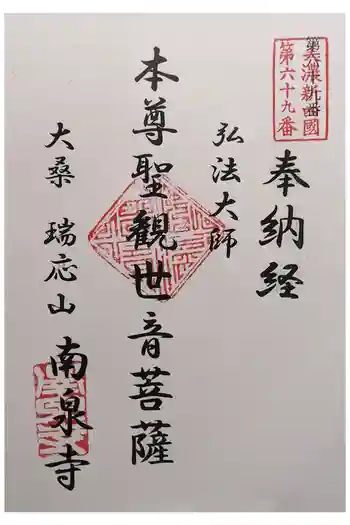 第六十九番
奉納経
弘法大師
本尊聖観世音菩薩
大桑 瑞応山 南泉寺